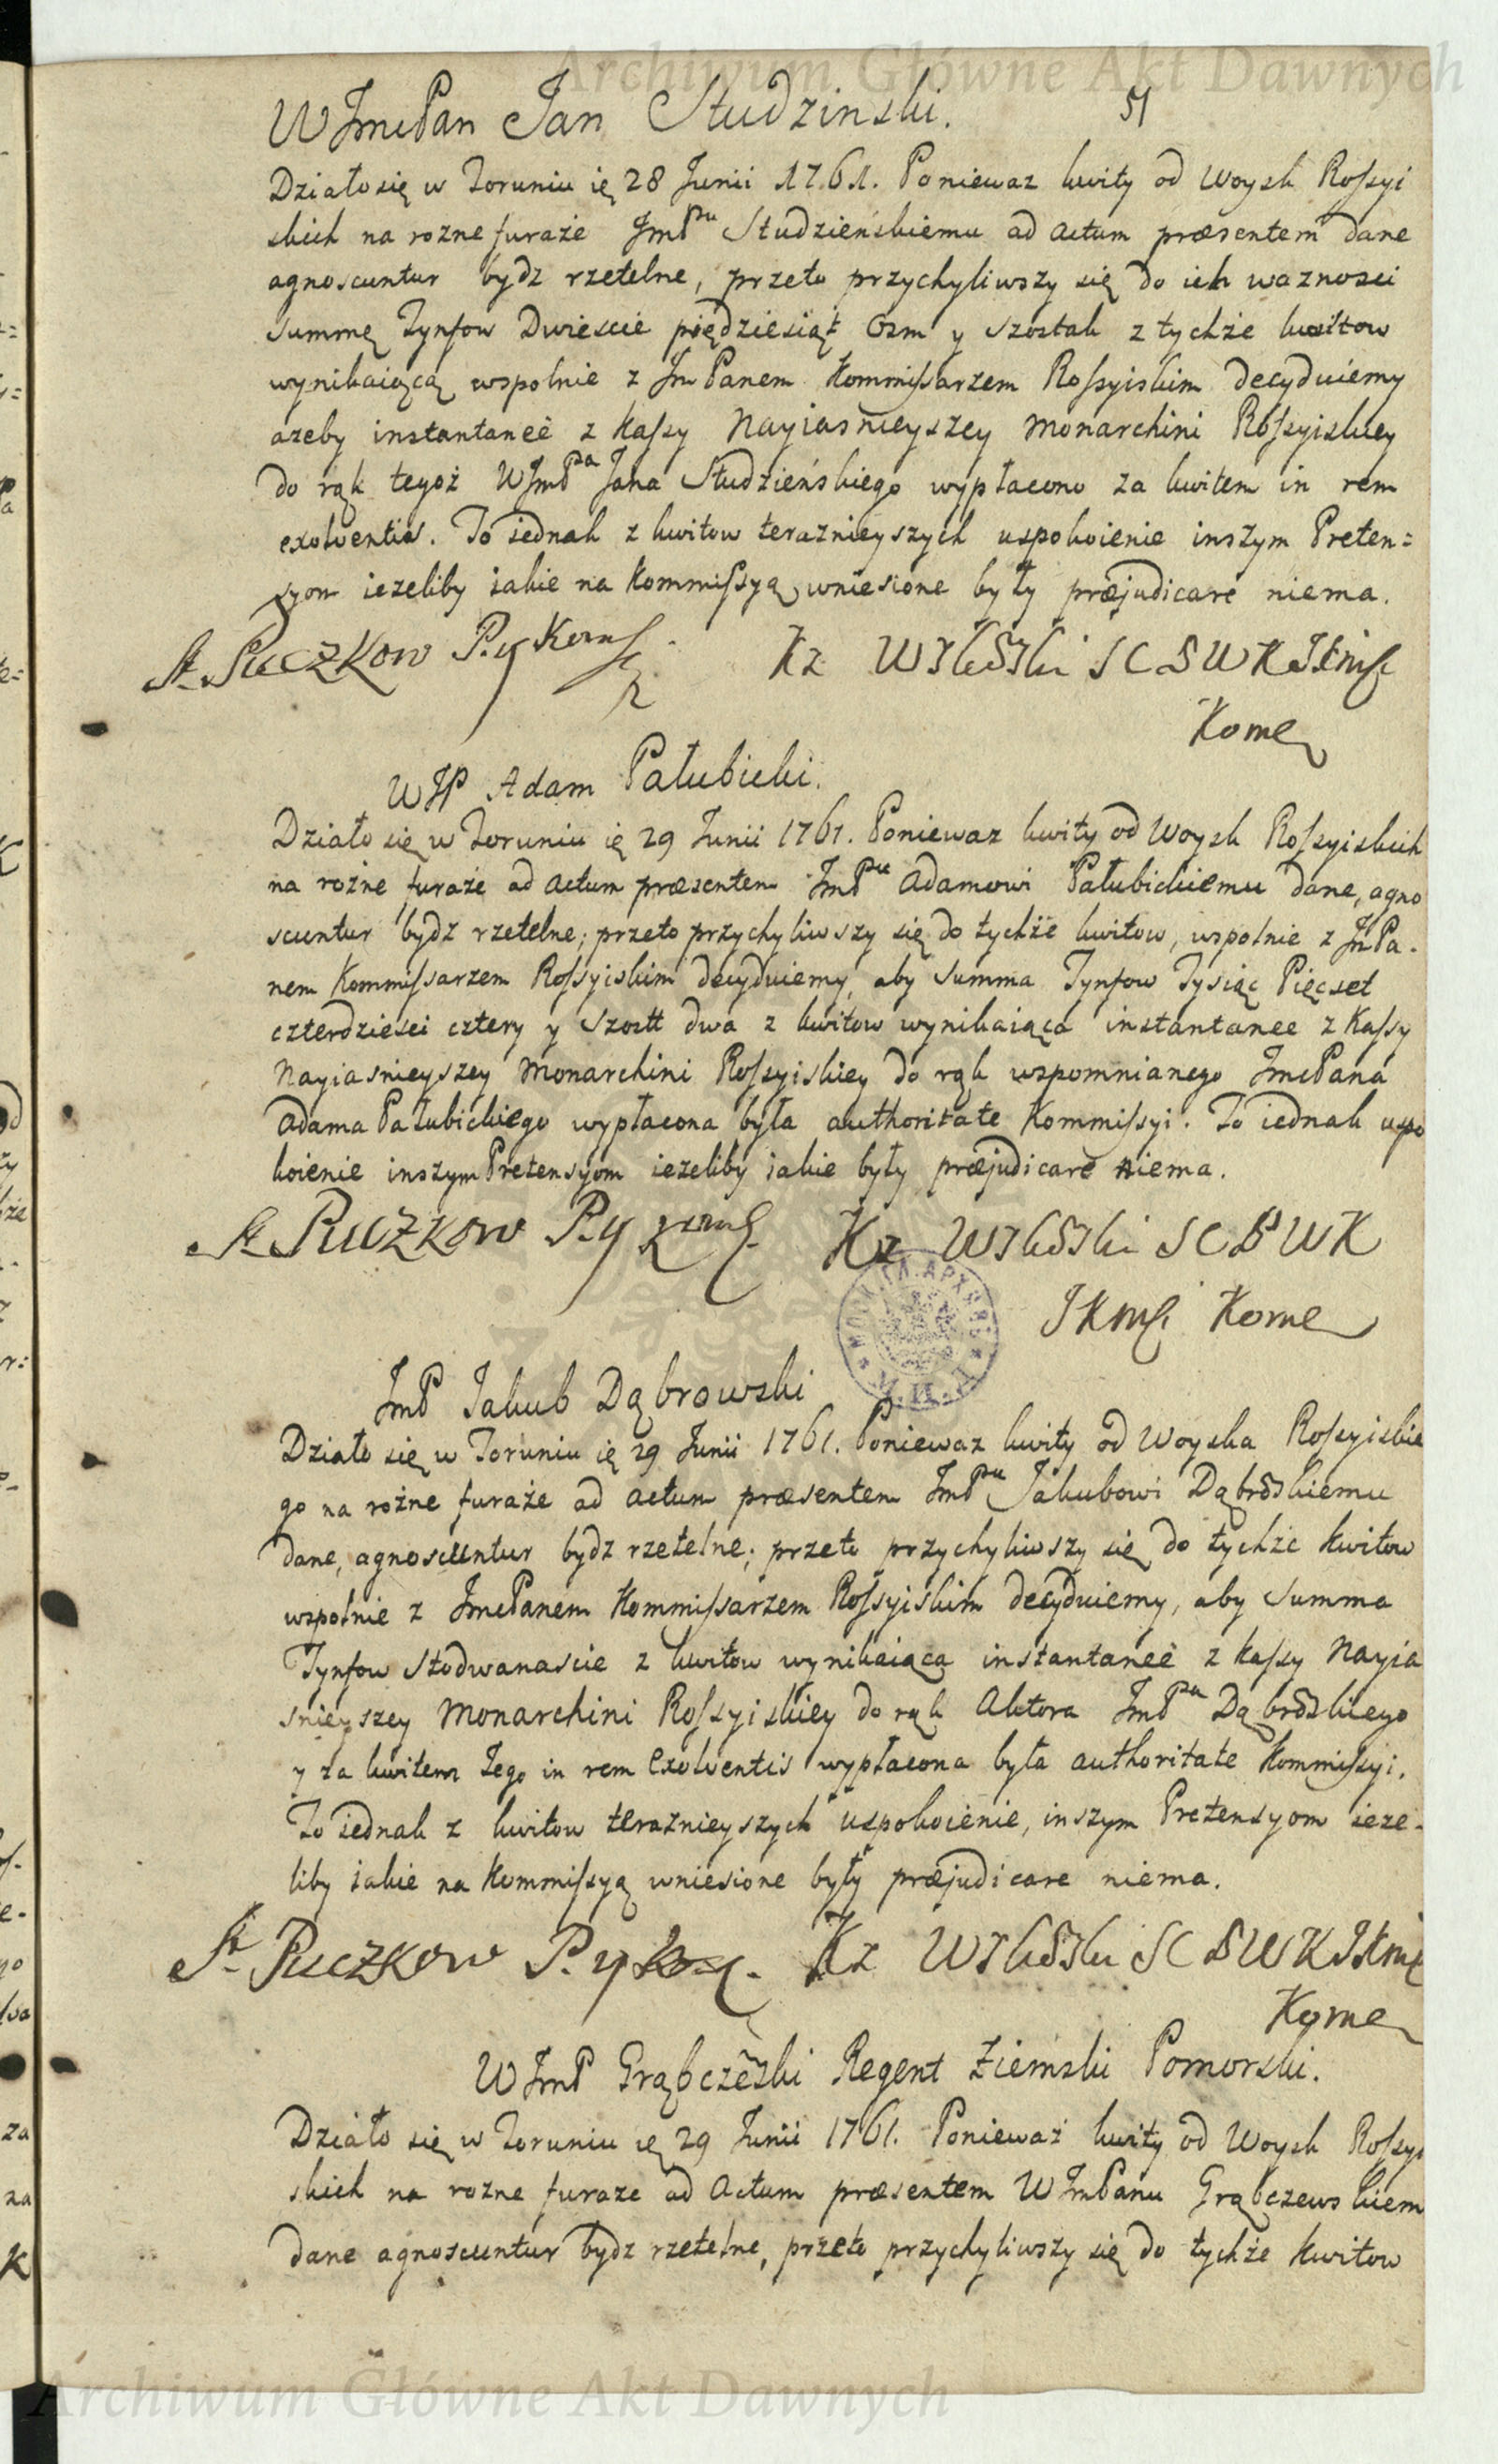 Archiwum Główne Akt Dawnych
51
WJmcPan Jan Studzinski.
Działo się w Toruniu ię 28 Junii 1761. Poniewaz kwity od Woysk Rossyi
skich na rozne furaże JmPnu Studzieńskiemu ad actum præsentem dane
agnoscuntur bydz rzetelne, przeto przychyliwszy się do ich waznosci
summę Tynfow Dwiescie piędziesiąt Osm y szostak z tychże kwitow
wynikaiącą wspolnie z JmPanem Kommissarzem Rossyiskim decyduiemy
azeby instantaneè z kassy Nayiasnieyszey Monarchini Rossyiskiey
do rąk tegoż WJmPa Jana Studzieńskiego wypłacono za kwitem in rem
exolventis. To iednak z kwitow teraznieyszych uspokoienie inszym Preten=
syom iezeliby iakie na Kommissyą wniesione były præjudicare niema.
St Puczkow P. y Kom
Kz Wskōski SCSWKJKmsc
Kome
WJP Adam Pałubicki.
Działo się w Toruniu ię 29 Junii 1761. Poniewaz kwity od Woysk Rossyiskich
na rożne furaże ad actum præsentem JmPnu Adamowi Pałubickiemu dane, agno
scuntur bydz rzetelne; przeto przychyliwszy się do tychże kwitow, wspolnie z JmPa-
nem Kommissarzem Rossyiskim decyduiemy, aby summa Tynfow Tysiąc Pięcset
czterdziesci cztery y szostt dwa z kwitow wynikaiąca instantanee z Kassy
Nayiasnieyszey Monarchini Rossyiskiey do rąk wspomnianego JmcPana
Adama Pałubickiego wypłacona była authoritate Kommissyi. To iednak uspo
koienie inszym Pretensyom iezeliby iakie były præjudicare niema.
St Puczkow P. y Kom
Kz Wskōski SCSWK
JKmsc Kome
JmP Jakub Dąbrowski
Działo się w Toruniu ię 29 Junii 1761. Poniewaz kwity od Woyska Rossyiskie
go na rożne furaże ad actum præsentem JmPnu Jakubowi Dąbrōskiemu
dane, agnoscuntur bydz rzetelne; przeto przychyliwszy się do tychże kwitow
wspolnie z JmcPanem Kommissarzem Rossyiskim decyduiemy, aby summa
Tynfow stodwanascie z kwitow wynikaiąca instantaneè z kassy Nayia
snieyszey Monarchini Rossyiskiey do rąk Aktora JmPa Dąbrōskiego
y za kwitem tego in rem exolventis wypłacona była authoritate Kommissyi.
To iednak z kwitow teraznieyszych uspokoienie, inszym Pretensyom ieze-
liby iakie na Kommissyą wniesione były præjudicare niema.
St Puczkow P. y
Kz Wskōski SCSWKJKmc
Kome
WJmP Grąbczēski Regent Ziemski Pomorski.
Działo się w Toruniu ię 29 Junii 1761. Ponieważ kwity od Woysk Rossyi
skich na rozne furaze ad actum præsentem WJmPanu Grąbczewskiem
dane agnoscuntur bydz rzetelne, przeto przychyliwszy się do tychże kwitow
Archiwum Główne Akt Dawnych